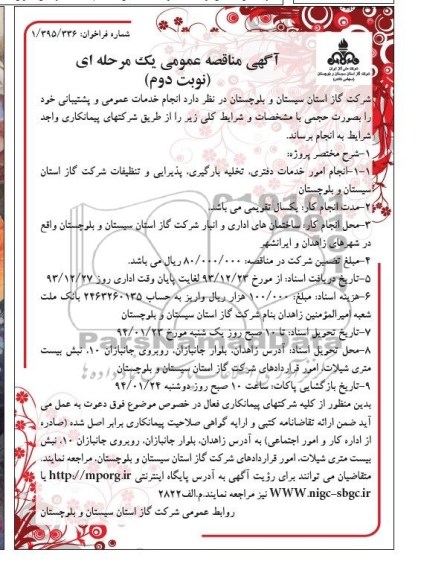 شماره فراخوان: ۱/۳۹۵/۳۳۶
شرکت ملی گاز ایران
شرکت گاز استان سیستان و بلوچستان
(سهامی خاص)
آگهی مناقصه عمومی یک مرحله ای
(نوبت دوم)
شرکت گاز استان سیستان و بلوچستان در نظر دارد انجام خدمات عمومی و پشتیبانی خود
را بصورت حجمی با مشخصات و شرایط کلی زیر را از طریق شرکتهای پیمانکاری واجد
شرایط به انجام برساند.
۱-شرح مختصر پروژه:
۱-۱-انجام امور خدمات دفتری، تخلیه بارگیری، پذیرایی و تنظیفات شرکت گاز استان
سیستان و بلوچستان
۲-مدت انجام کار: یکسال تقویمی می باشد.
۳-محل انجام کار: ساختمان های اداری و انبار شرکت گاز استان سیستان و بلوچستان واقع
در شهرهای زاهدان و ایرانشهر
۴-مبلغ تضمین شرکت در مناقصه: ۸۰/۰۰۰/۰۰۰ ریال می باشد.
۵-تاریخ دریافت اسناد: از مورخ ۹۳/۱۲/۲۳ لغایت پایان وقت اداری روز ۹۳/۱۲/۲۷
۶-هزینه اسناد: مبلغ، ۱۰۰/۰۰۰ هزار ریال واریز به حساب ۲۴۶۳۲۶۰۱۳۵ بانک ملت
شعبه امیرالمؤمنین زاهدان بنام شرکت گاز استان سیستان و بلوچستان
۷-تاریخ تحویل اسناد: تا ۱۰ صبح روز یک شنبه مورخ ۹۲/۰۱/۲۳
۸-محل تحویل اسناد: آدرس زاهدان، بلوار جانبازان، روبروی جانبازان ۱۰، نبش بیست
متری شیلات، امور قراردادهای شرکت گاز استان سیستان و بلوچستان
۹-تاریخ بازگشایی پاکات: ساعت ۱۰ صبح روز دوشنبه ۹۴/۰۱/۲۴
بدین منظور از کلیه شرکتهای پیمانکاری فعال در خصوص موضوع فوق دعوت به عمل می
آید ضمن ارائه تقاضانامه کتبی و ارایه گواهی صلاحیت پیمانکاری برابر اصل شده (صادره
از اداره کار و امور اجتماعی) به آدرس زاهدان، بلوار جانبازان، روبروی جانبازان ۱۰، نبش
بیست متری شیلات، امور قراردادهای شرکت گاز استان سیستان و بلوچستان، مراجعه نمایند.
متقاضیان می توانند برای رؤیت آگهی به آدرس پایگاه اینترنتی http://mporg.ir یا
WWW.nigc-sbgc.ir نیز مراجعه نمایند.م.الف۲۸۲۲
روابط عمومی شرکت گاز استان سیستان و بلوچستان
ParsNamadData